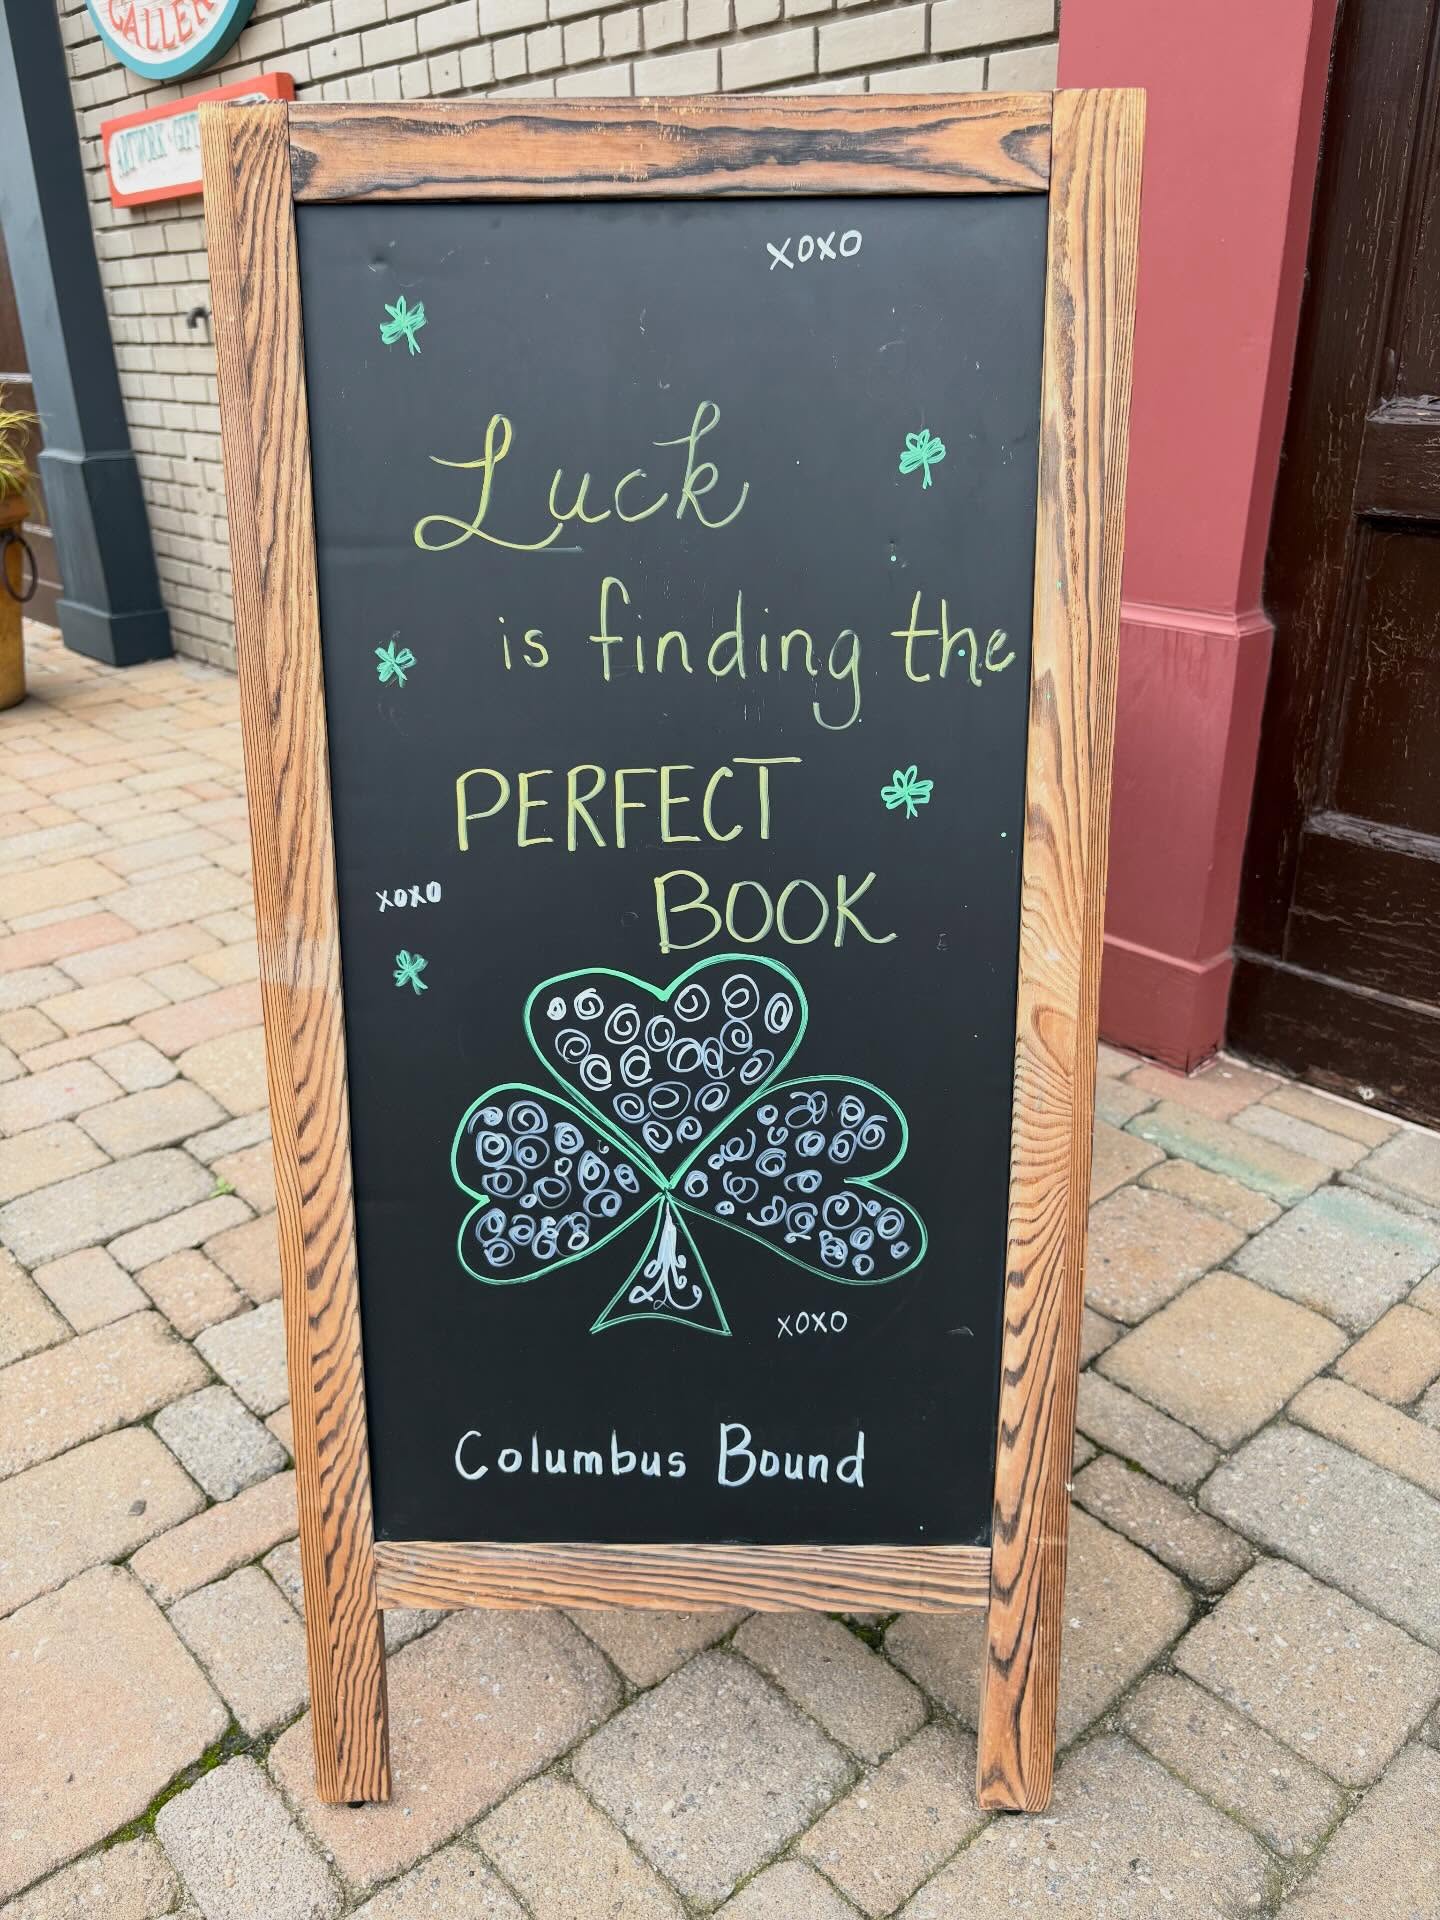 GALLER
ARTWORK
xoxo
Luck
is finding the
PERFECT
BOOK
xoxo
xoxo
Columbus Bound